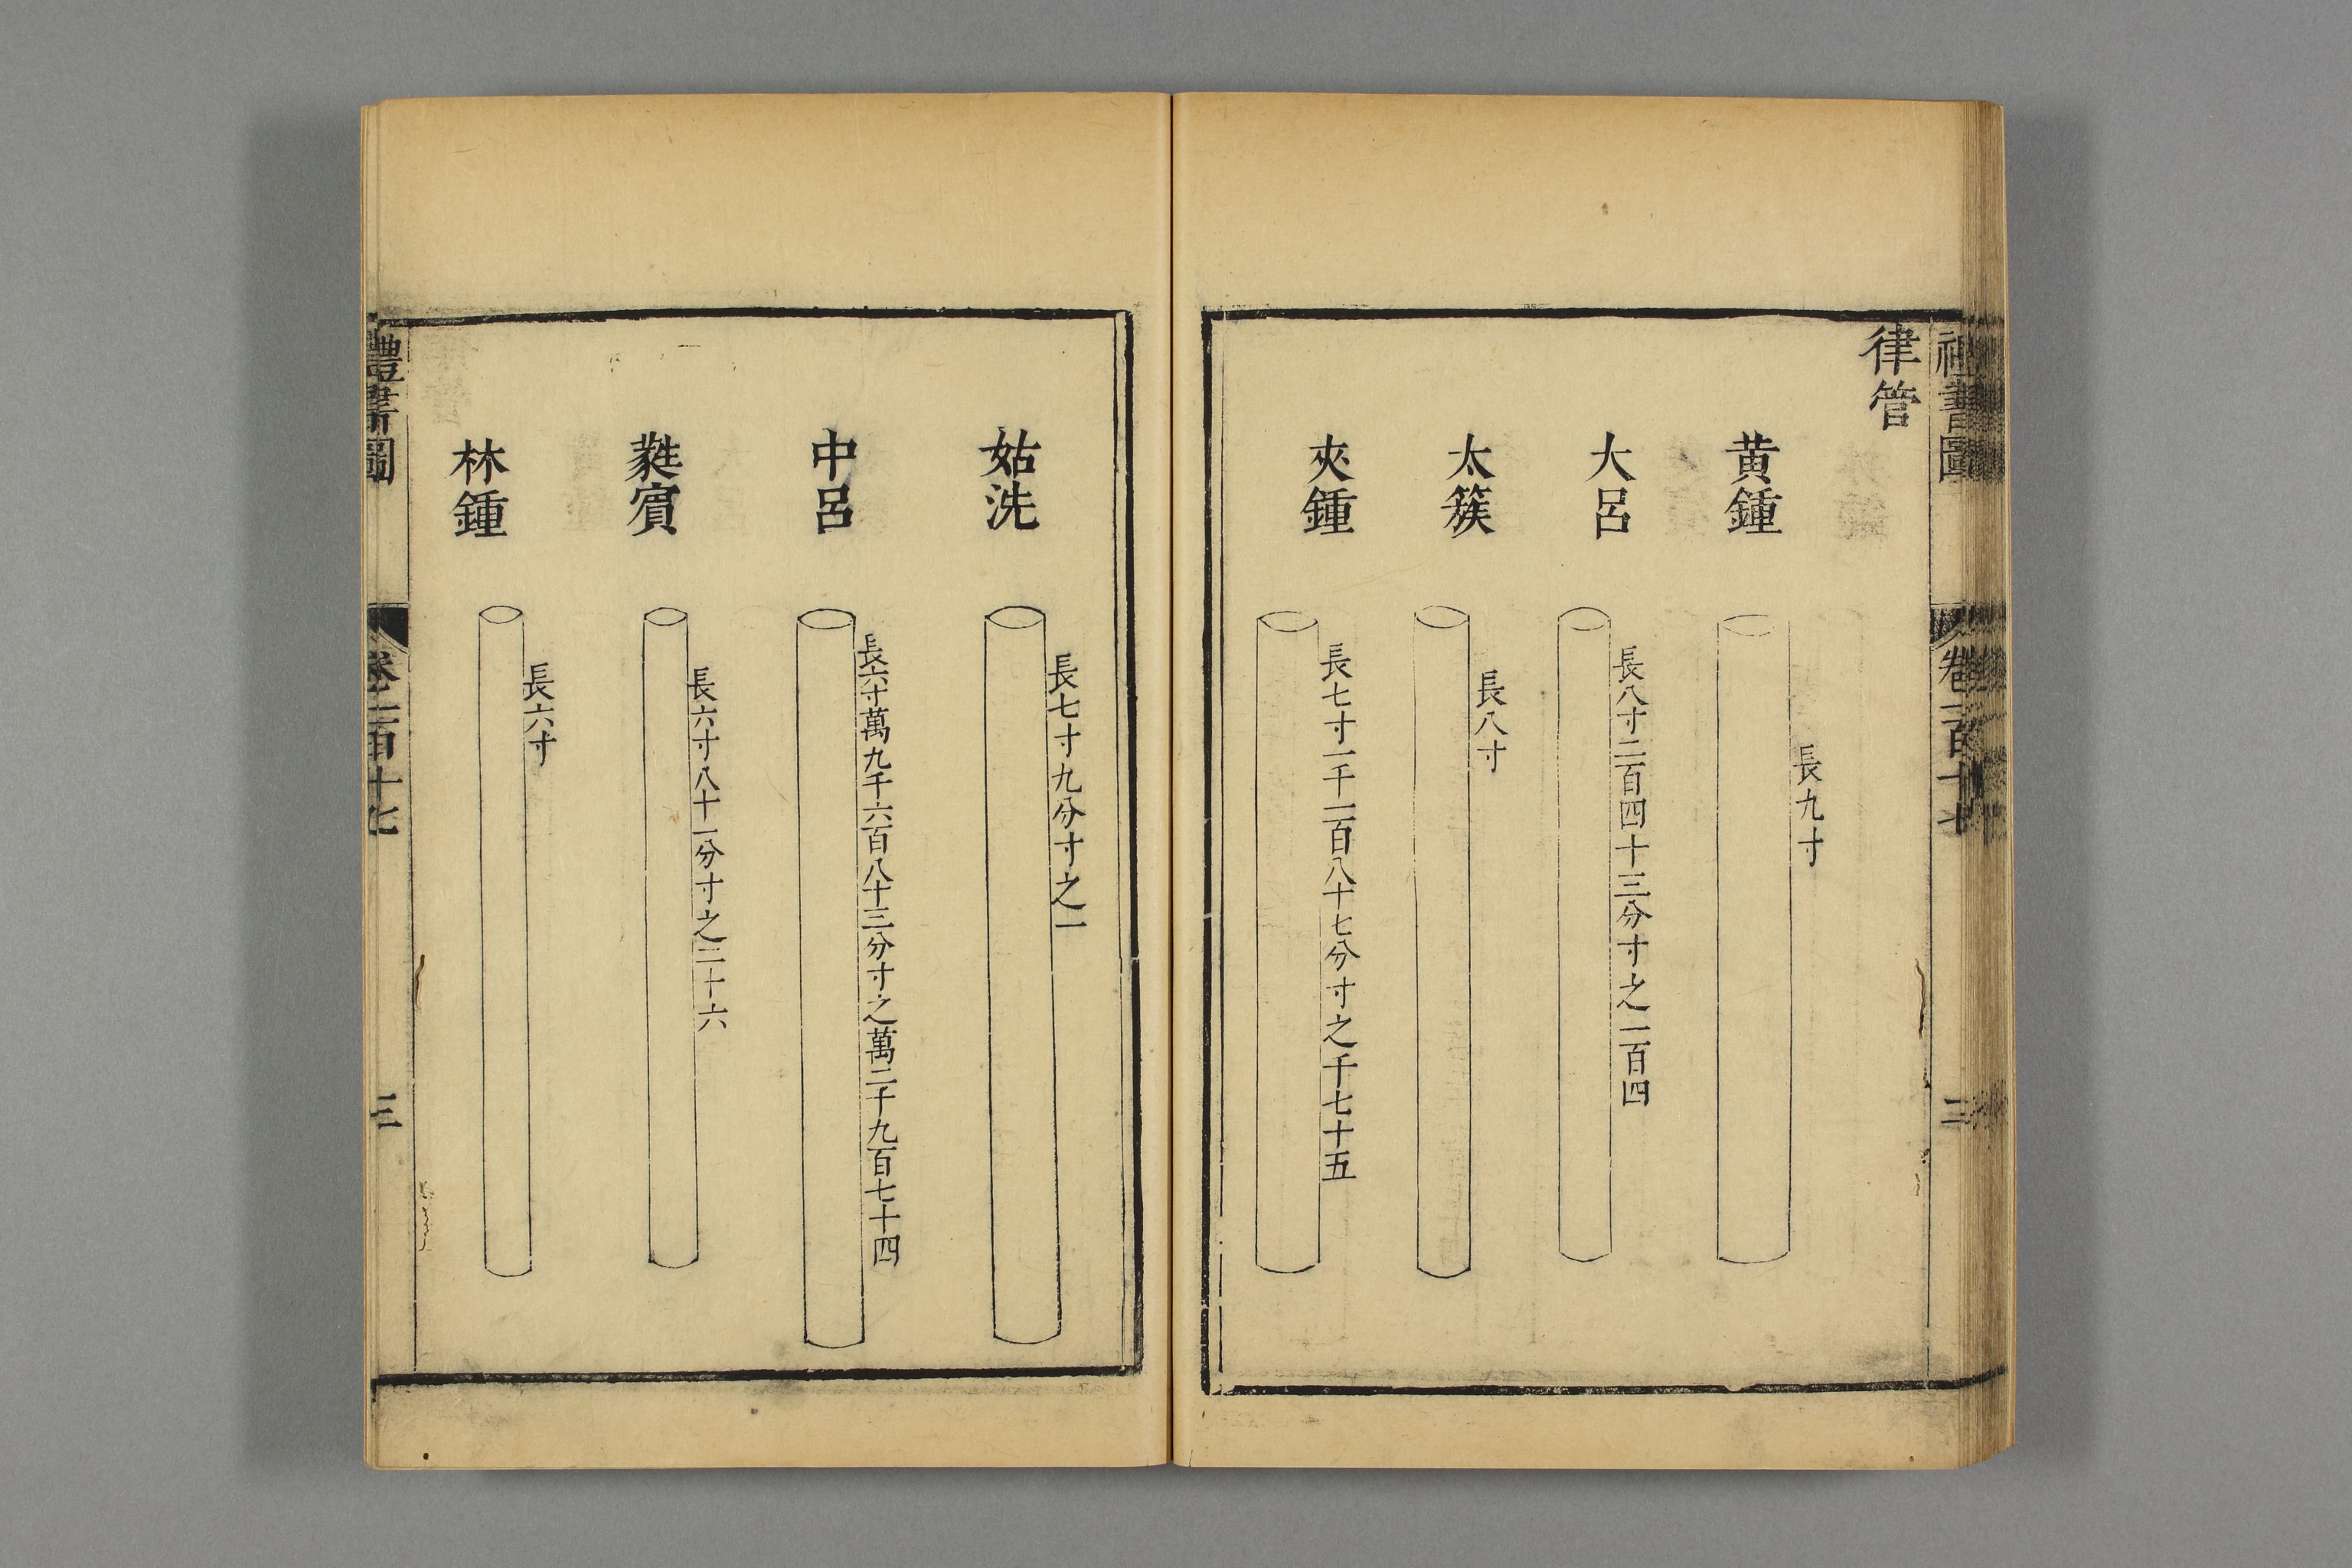 禮書圖
卷一百十七
二
律管
黄鍾
長九寸
大呂
長八寸二百四十三分寸之一百四
太簇
長八寸
夾鍾
長七寸一千一百八十七分寸之千七十五
姑洗
長七寸九分寸之一
中呂
長六寸萬九千六百八十三分寸之萬二千九百七十四
蕤賔
長六寸八十一分寸之二十六
林鍾
長六寸
禮書圖
卷一百十七
三